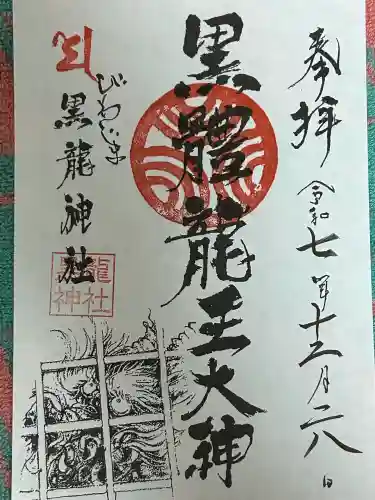 奉拝
令和七年十二月二八日
黒體龍王大神
びわくま
黒龍神社
黒龍神社